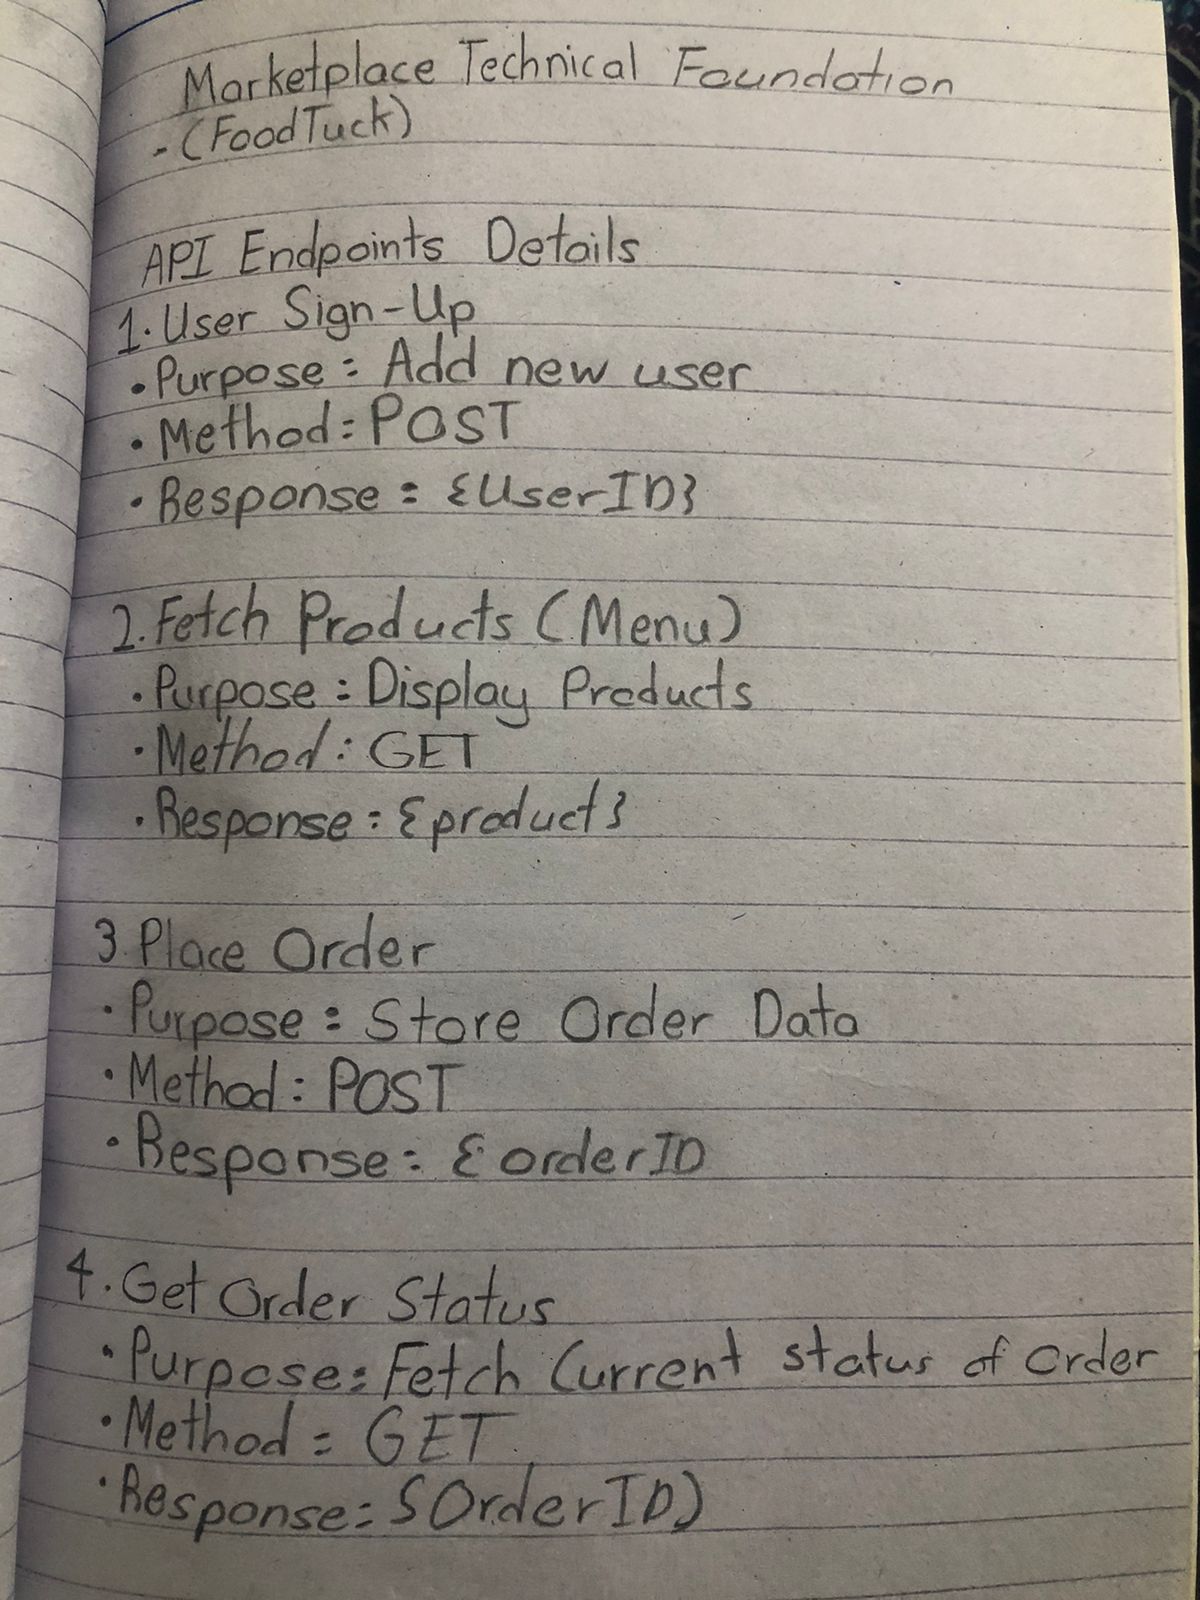 Marketplace Technical Foundation
- (FoodTuck)
API Endpoints Details
1. User Sign-Up
• Purpose: Add new user
• Method: POST
• Response: {UserID}
2. Fetch Products (Menu)
• Purpose: Display Products
• Method: GET
• Response: {product}
3. Place Order
• Purpose: Store Order Data
• Method: POST
• Response: { orderID
4. Get Order Status
• Purpose: Fetch Current status of order
• Method: GET
• Response: {OrderID)